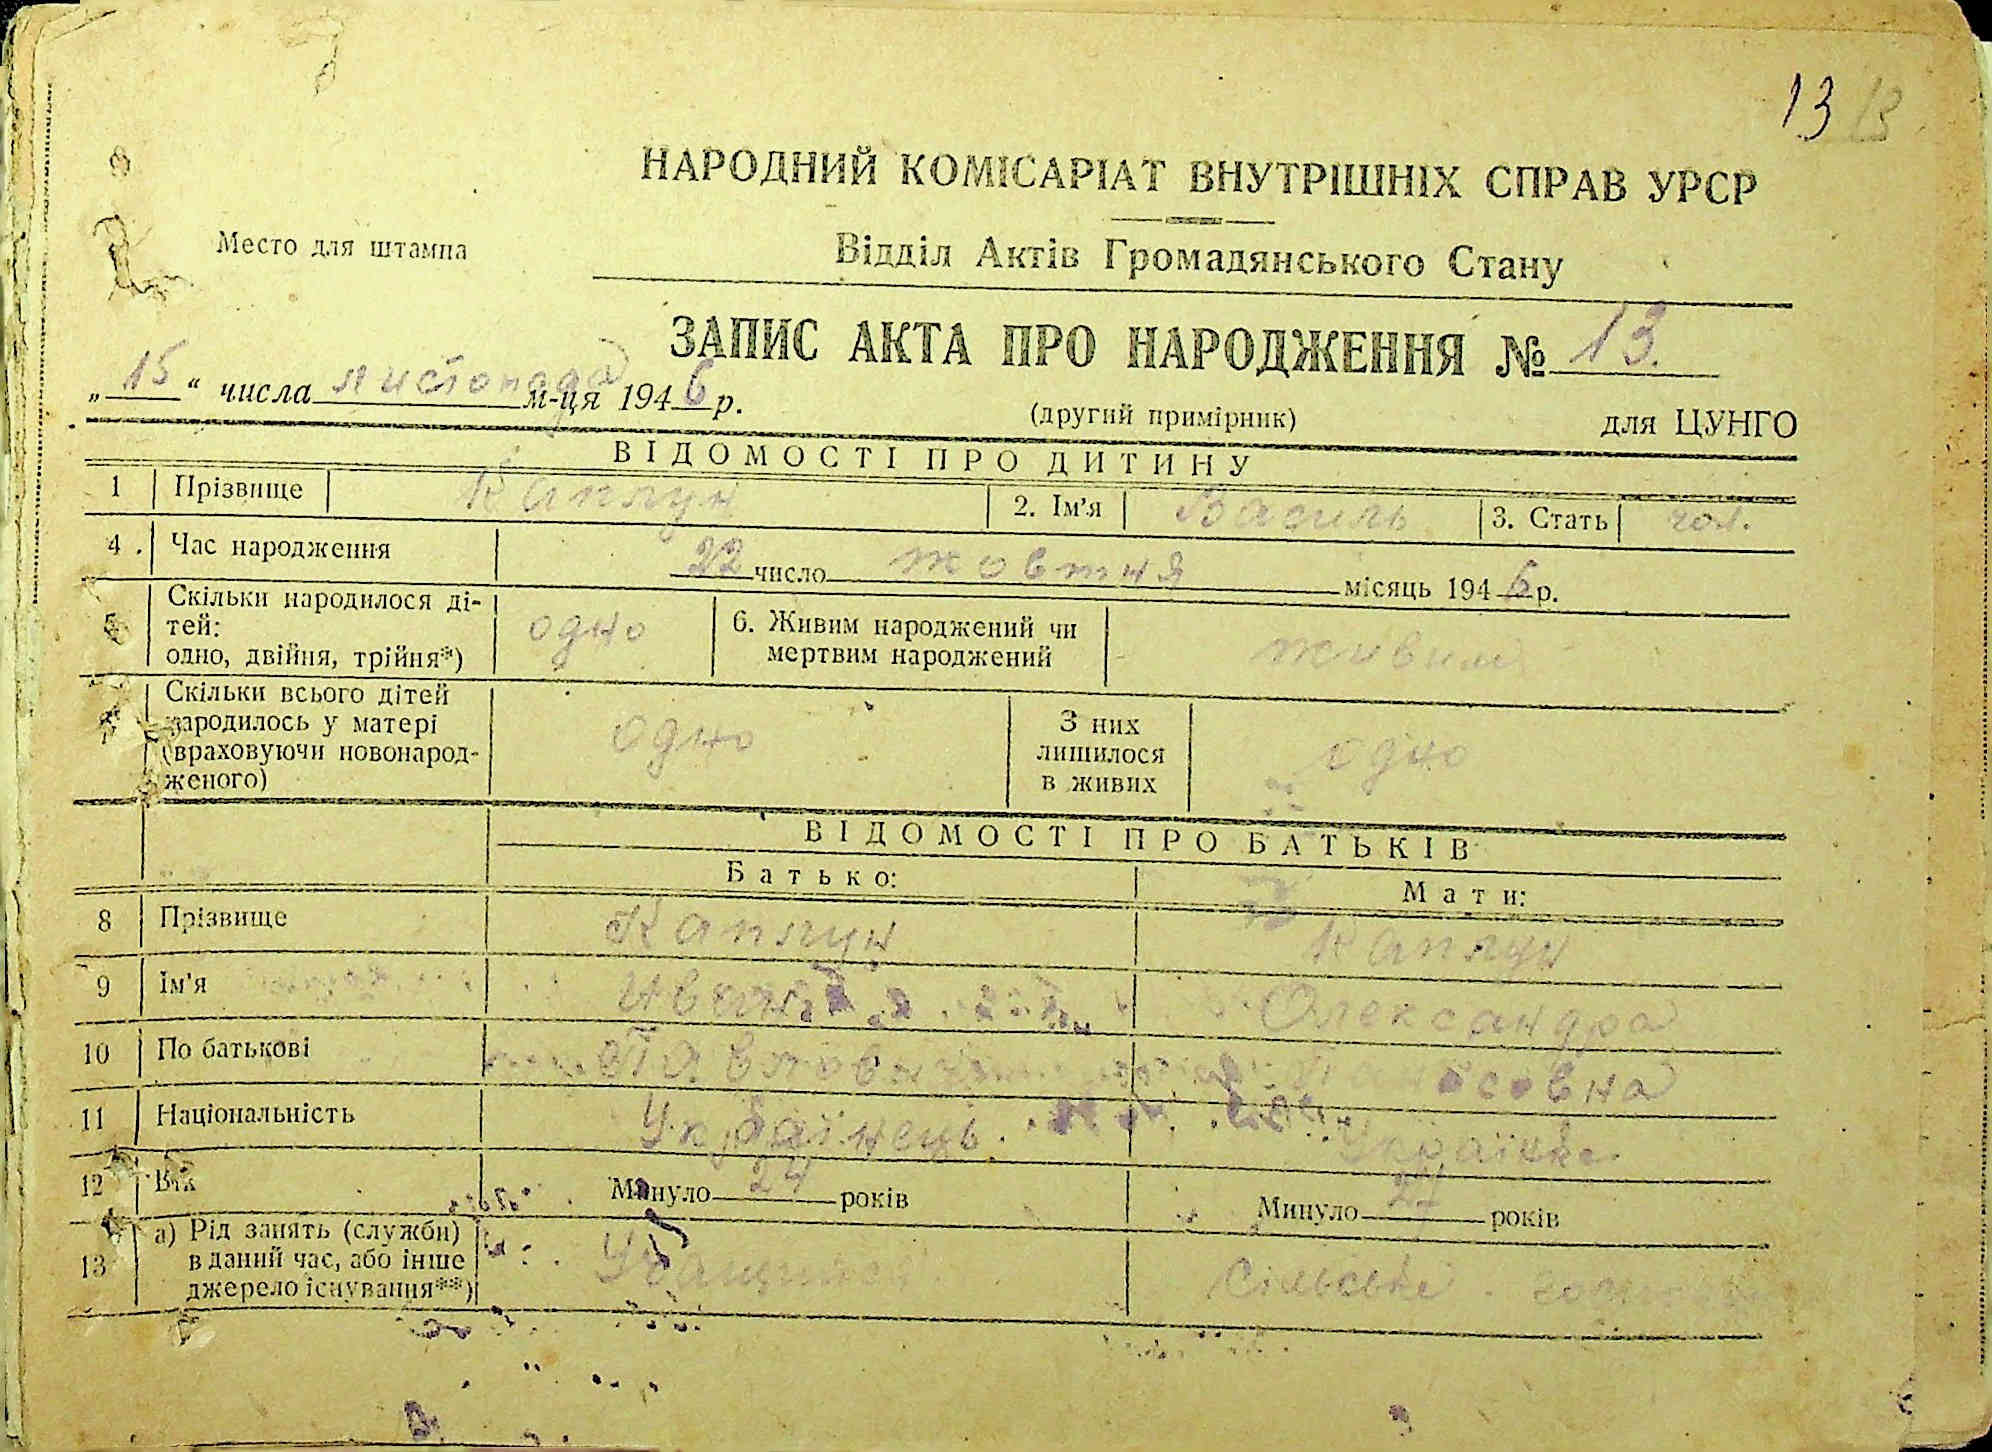 13 13
НАРОДНИЙ КОМІСАРІАТ ВНУТРІШНІХ СПРАВ УРСР
Место для штампа
Відділ Актів Громадянського Стану
ЗАПИС АКТА ПРО НАРОДЖЕННЯ № 13.
„ 15 “ числа листопада м-ця 1946 р.
(другий примірник) для ЦУНГО
ВІДОМОСТІ ПРО ДИТИНУ
1 Прізвище Каплун 2. Ім'я Василь 3. Стать чол.
4. Час народження 22 число жовтня місяць 1946 р.
5 Скільки народилося ді-
тей:
одно, двійня, трійня*) одно 6. Живим народжений чи
мертвим народжений живим
7 Скільки всього дітей
народилось у матері
(враховуючи новонарод-
женого) одно З них
лишилося
в живих одно
ВІДОМОСТІ ПРО БАТЬКІВ
Батько: Мати:
8 Прізвище Каплун Каплун
9 Ім'я Іван Олександра
10 По батькові Павлович
11 Національність Українець Українка
12 Вік Минуло 24 років Минуло років
13 а) Рід занять (служби)
в даний час, або інше
джерело існування**) Сільське